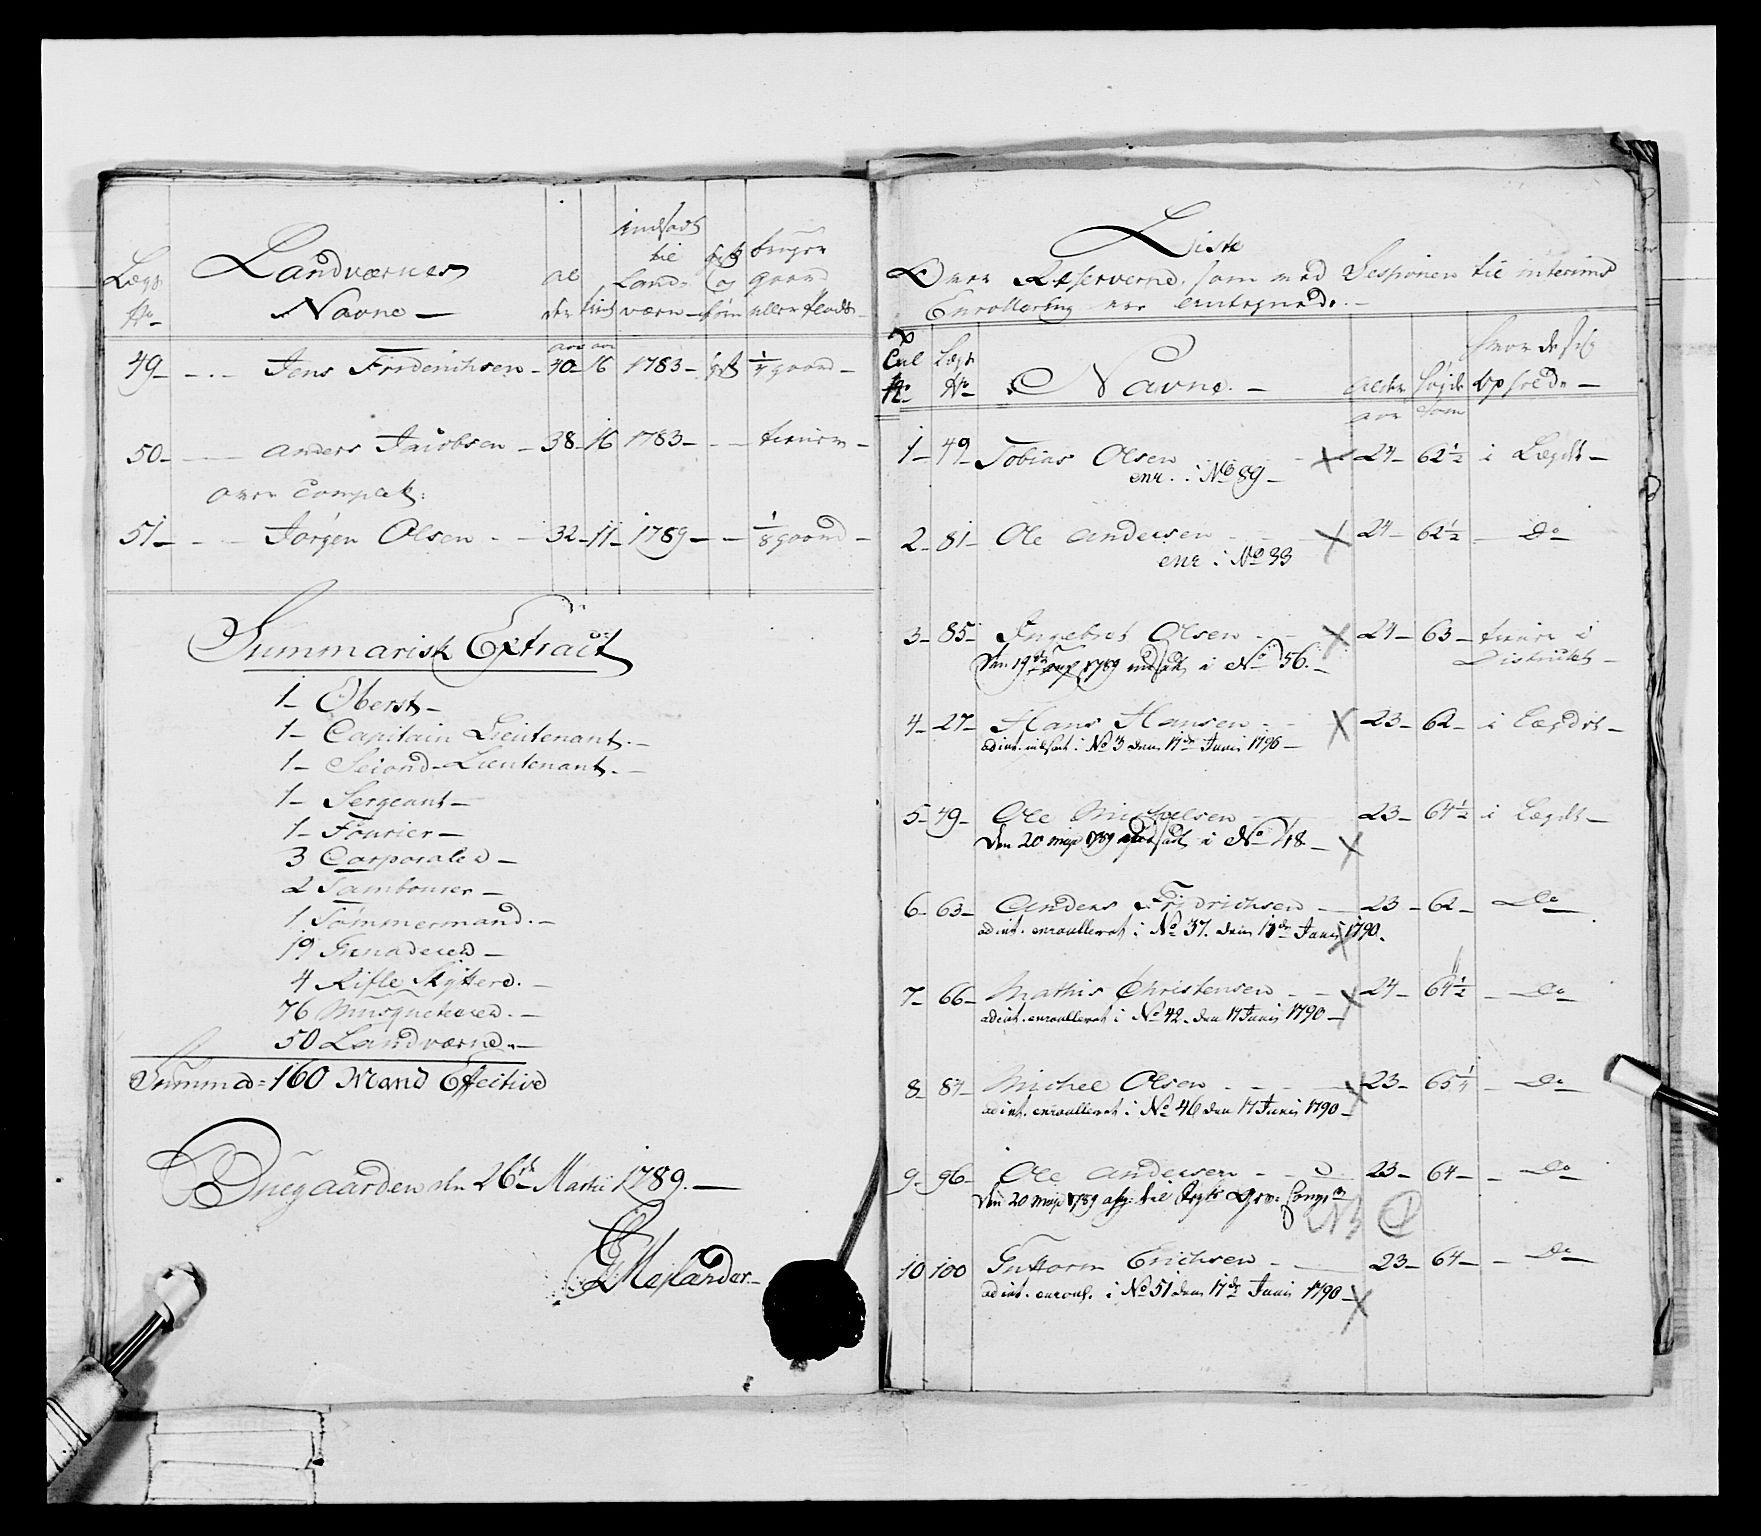 Lægs No
Landværnes Navne
al der
tient
indsadt til Land værn
gift og børn
bruger gaard eller Plads
aar aar
49 Jens Friderichsen 40 16 1783 gift 1/4 gaard
50 Anders Jacobsen 38 16 1783
over Complet:
51 Jørgen Olsen 32 11 1789 1/8 gaard
Summarisk Extract
1 Oberst
1 Capitain Lieutenant
1 Second-Lieutenant
1 Sergeant
1 Fourier
3 Corporaler
2 Tambourer
1 Tømmermand
19 Grenaderer
4 Rifle Skyttere
76 Musqueterer
50 Landværne
Summa 160 Mand Effective
den 26de Martii 1789
Liste
Over Reserverne, som ved Sessionen til interims
Enrollering ere antegnede
No
Lægs No
Navne
alder aar
Høyde tom
hvor de sig opholde
1 49 Tobias Olsen 24 62 1/2 i Lægdt
enr. i No 89
2 81 Ole Andersen 24 62 1/2 Do
enr i No 33
3 85 Ingebret Olsen 24 63 tiener i Districtet
Den 19de 1789 indsadt i No 56
4 27 Hans Hansen 23 62 i Lægdt
ad int. indsat i No 3 den 17de Junii 1790
5 49 Ole Michelsen 23 64 1/2 i Lægdt
Den 20 1789 indsadt i No 48
6 63 Anders Fridrichsen 23 62 Do
ad int. enroulleret i No 37. den 17de Junii 1790
7 66 Mathis Christensen 24 64 1/2 Do
ad int. enroulleret i No 42 den 17 Junii 1790
8 87 Michel Olsen 23 65 1/4 Do
ad int. enroulleret i No 46 den 17 Junii 1790
9 96 Ole Andersen 23 64 Do
Den 20 1789 afg: til
10 100 Guttorm Erichsen 23 64 Do
ad int. enroul. i No 51 den 17de Junii 1790